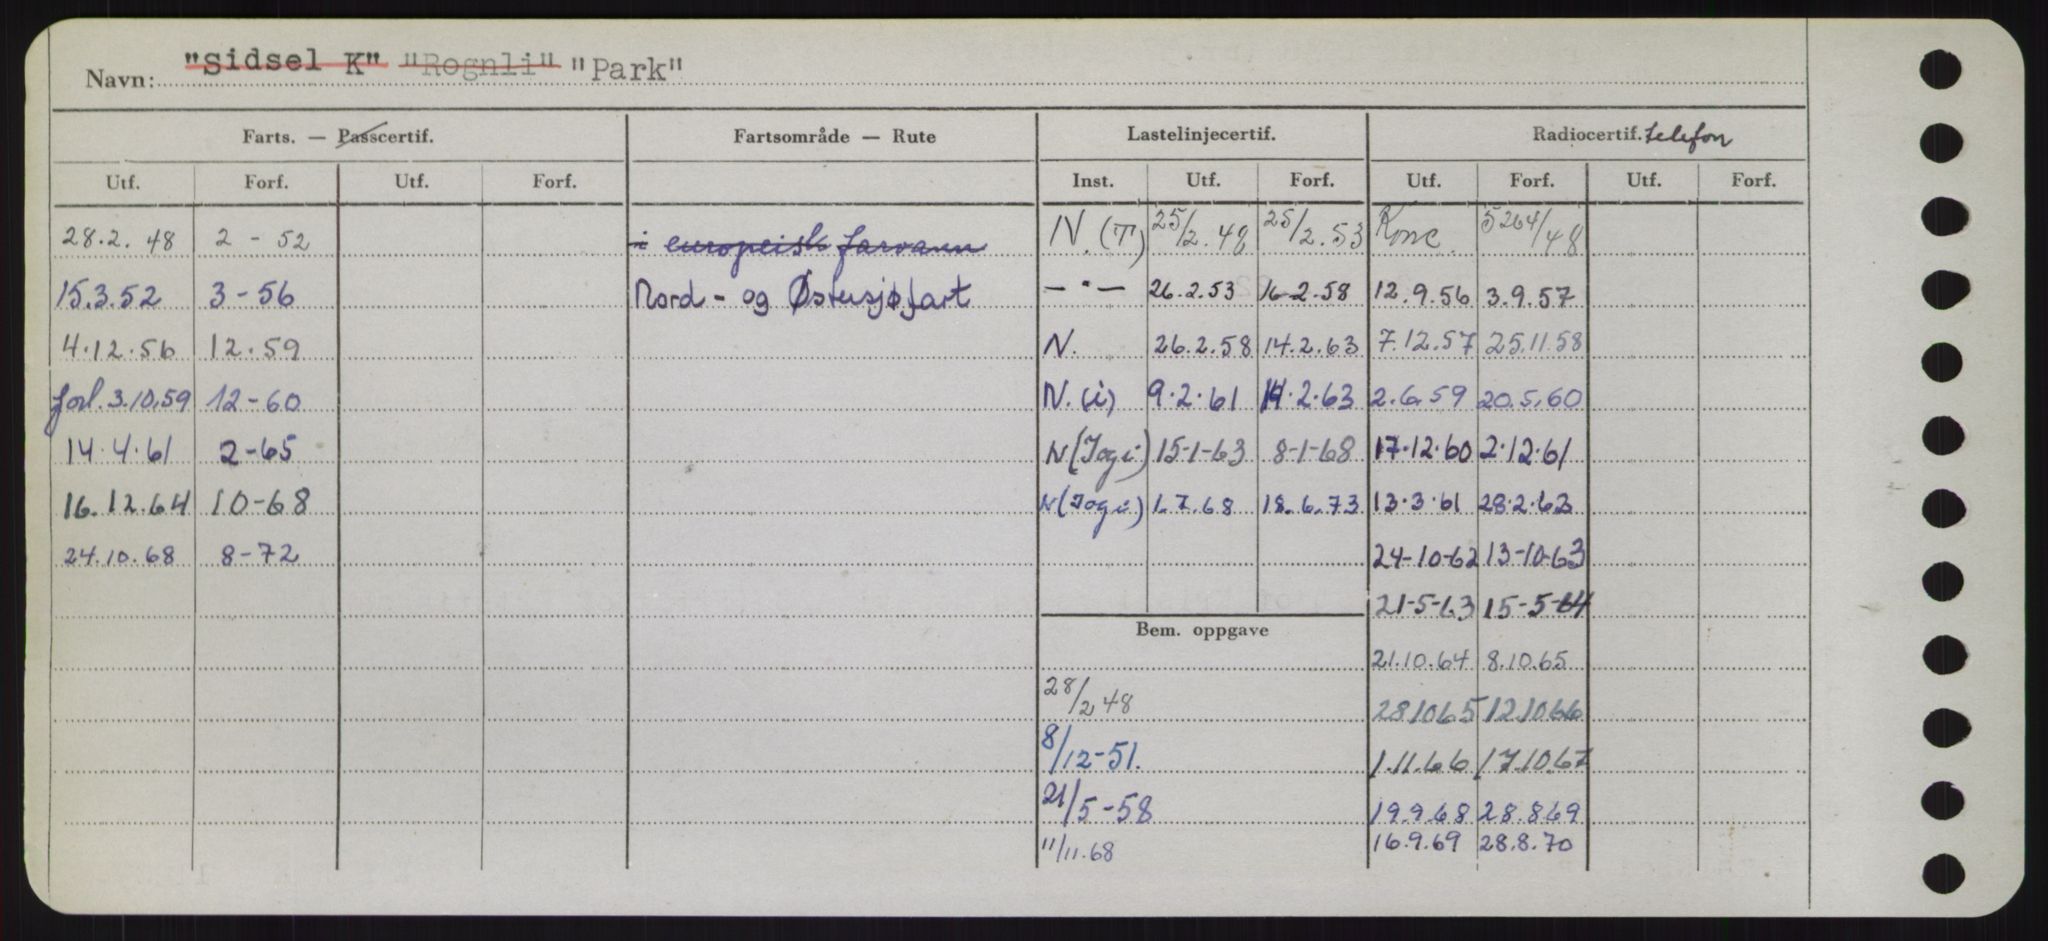 Navn: "Sidsel K" "Rognli" "Park"
Farts. — Passcertif. Fartsområde — Rute Lastelinjecertif. Radiocertif. telefon
Utf. Forf. Utf. Forf. Inst. Utf. Forf. Utf. Forf. Utf. Forf.
28.2.48 2 - 52 i europeisk farvann N. (T) 25/2.48 25/2.53 Konc. 5264/48
15.3.52 3-56 Nord- og Østersjøfart — " — 26.2.53 16-2.58 12.9.56 3.9.57
4.12.56 12.59 N. 26.2.58 14.2.63 7.12.57 25.11.58
forl. 3.10.59 12-60 N. (i) 9.2.61 14.2.63 2.6.59 20.5.60
14.4.61 2-65 N(Iogi) 15-1-63 8-1-68 17.12.60 2.12.61
16.12.64 10-68 N(Iogi) 1.7.68 18.6.73 13.3.61 28.2.63
24.10.68 8-72 24-10-62 13-10-63
21-5-63 15-5-64
Bem. oppgave
21.10.64 8.10.65
28/2 48 28.10.65 12.10.66
8/12-51. 1.11.66 17.10.67
21/5-58 19.9.68 28.8.69
11/11.68 16.9.69 28.8.70